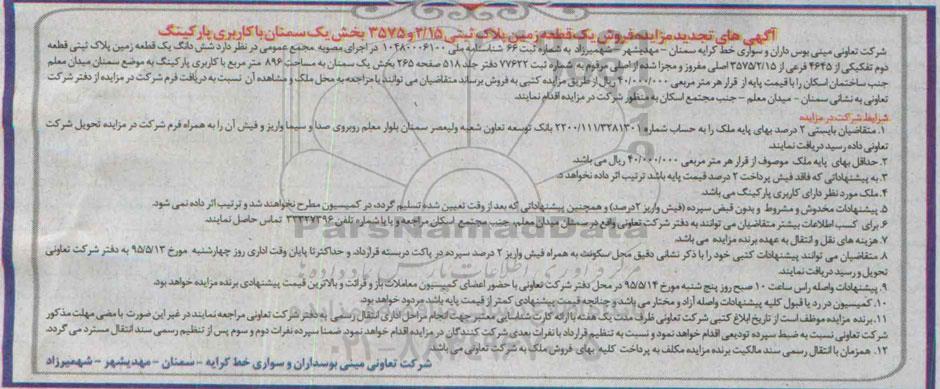 آگهی های تجدید مزایده فروش یک قطعه زمین پلاک ثبتی ۲/۱۵ و ۳۵۷۵ بخش یک سمنان با کاربری پارکینگ
شرکت تعاونی مینی بوس داران و سواری خط کرایه سمنان – مهدیشهر – شهمیرزاد به شماره ثبت ۶۶ شناسنامه ملی ۱۰۴۸۰۰۰۶۱۰۰ در اجرای مصوبه مجمع عمومی در نظر دارد شش دانگ یک قطعه زمین پلاک ثبتی قطعه
دوم تفکیکی از ۴۶۴۵ فرعی از ۳۵۷۵/۲/۱۵ اصلی مفروز و مجزا شده از اصلی مرقوم به شماره ثبت ۷۷۶۲۲ دفتر جلد ۵۱۸ صفحه ۲۶۵ بخش یک سمنان به مساحت ۸۹۶ متر مربع با کاربری پارکینگ به موضع سمنان میدان معلم
جنب ساختمان اسکان را با قیمت پایه از قرار هر متر مربعی ۴۰/۰۰۰/۰۰۰ ریال از طریق مزایده کتبی به فروش برساند متقاضیان می توانند با مراجعه به محل ملک و مشاهده آن نسبت به دریافت فرم شرکت در مزایده از دفتر شرکت
تعاونی به نشانی سمنان – میدان معلم – جنب مجتمع اسکان به منظور شرکت در مزایده اقدام نمایند.
شرایط شرکت در مزایده
۱. متقاضیان بایستی ۲ درصد بهای پایه ملک را به حساب شماره ۲۲۰۰/۱۱۱/۳۲۸۱۳۰۱ بانک توسعه تعاون شعبه ولیعصر سمنان بلوار معلم روبروی صدا و سیما واریز و فیش آن را به همراه فرم شرکت در مزایده تحویل شرکت
تعاونی داده رسید دریافت نمایند.
۲. حداقل بهای پایه ملک موصوف از قرار هر متر مربعی ۴۰/۰۰۰/۰۰۰ ریال می باشد.
۳. به پیشنهاداتی که فاقد فیش پرداخت ۲ درصد قیمت پایه باشد ترتیب اثر داده نخواهد شد.
۴. ملک مورد نظر دارای کاربری پارکینگ می باشد.
۵. پیشنهادات مخدوش و مشروط و بدون قبض سپرده (فیش واریز ۲ درصد) و همچنین پیشنهاداتی که بعد از وقت تعیین شده تسلیم گردد، در کمیسیون مطرح نخواهند شد و ترتیب اثر داده نمی شود.
۶. برای کسب اطلاعات بیشتر متقاضیان می توانند به دفتر شرکت تعاونی واقع در سمنان میدان معلم، جنب مجتمع اسکان مراجعه و یا با شماره تلفن ۳۳۳۲۷۳۹۶ تماس حاصل نمایند.
۷. هزینه های نقل و انتقال به عهده برنده مزایده می باشد.
۸. متقاضیان می توانند پیشنهادات کتبی خود را با ذکر نشانی دقیق محل سکونت به همراه فیش واریز ۲ درصد سپرده در پاکت دربسته قرارداد، و حداکثر تا پایان وقت اداری روز چهارشنبه مورخ ۹۵/۵/۱۳ به دفتر شرکت تعاونی
تحویل و رسید دریافت نمایند.
۹. پیشنهادات واصله راس ساعت ۱۰ صبح روز پنج شنبه مورخ ۹۵/۵/۱۴ در محل دفتر شرکت تعاونی با حضور اعضای کمیسیون معاملات باز و قرائت و بالاترین قیمت پیشنهادی برنده مزایده خواهد بود.
۱۰. کمیسیون در رد یا قبول کلیه پیشنهادات واصله آزاد و مختار می باشد و چنانچه قیمت پیشنهادی کمتر از قیمت پایه باشد مردود خواهد بود.
۱۱. برنده مزایده موظف است از تاریخ ابلاغ کتبی شرکت تعاونی ظرف مدت یک هفته با ارائه کارت شناسایی معتبر جهت انجام مراحل اداری انتقال رسمی به دفتر شرکت تعاونی مراجعه نمایند در غیر این صورت با مضی مهلت مذکور
شرکت تعاونی نسبت به ضبط سپرده تودیعی اقدام خواهد نمود و نسبت به تنظیم قرارداد با نفرات بعدی شرکت کنندگان در مزایده اقدام خواهد نمود. ضمنا سپرده نفرات دوم و سوم پس از تنظیم رسمی سند انتقال مسترد می گردد.
۱۲. همزمان با انتقال رسمی سند مالکیت برنده مزایده مکلف به پرداخت کلیه بهای فروش ملک به شرکت تعاونی می باشد.
شرکت تعاونی مینی بوسداران و سواری خط کرایه – سمنان – مهدیشهر – شهمیرزاد
ParsNamadData